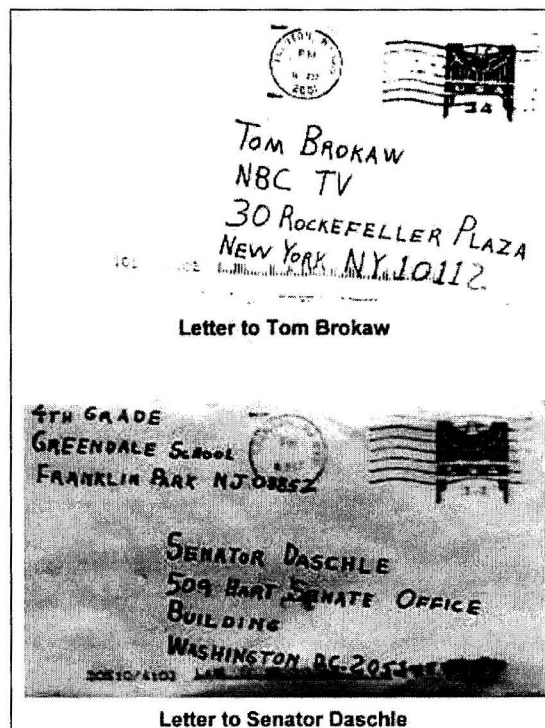 PM
2001
34
TOM BROKAW
NBC TV
30 ROCKEFELLER PLAZA
NEW YORK NY 10112
Letter to Tom Brokaw
4TH GRADE
GREENDALE SCHOOL
FRANKLIN PARK NJ 08852
PM
SENATOR DASCHLE
509 HART SENATE OFFICE
BUILDING
WASHINGTON D.C. 2051
20510/4103
Letter to Senator Daschle